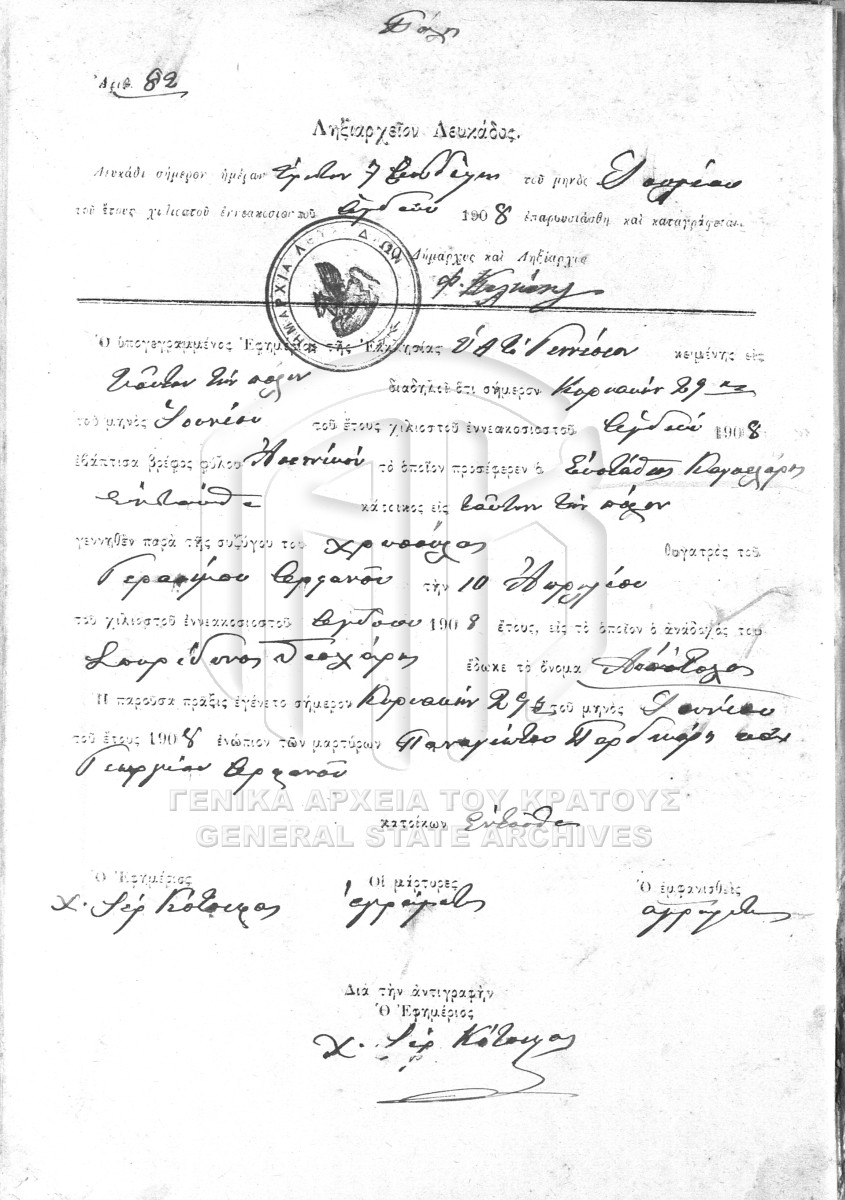 Πόλις
Ἀριθ. 82
Ληξιαρχεῖον Λευκάδος.
Λευκάδι σήμερον ἡμέραν Τρίτην τοῦ μηνὸς Ἰουλίου
τοῦ ἔτους χιλιοστοῦ ἐννεακοσιοστοῦ ὀγδόου 1908 ἐπαρουσιάσθη καὶ καταγράφεται.
Ὁ Δήμαρχος καὶ Ληξίαρχος
ΔΗΜΑΡΧΙΑ ΛΕΥΚΑΔΙΩΝ
Ὁ ὑπογεγραμμένος Ἐφημέριος τῆς Ἐκκλησίας Γεννέσιον κειμένης εἰς
ταύτην τὴν πόλιν διαδηλοῖ ὅτι σήμερον Κυριακήν 29
τοῦ μηνὸς Ἰουνίου τοῦ ἔτους χιλιοστοῦ ἐννεακοσιοστοῦ ὀγδόου 1908
ἐβάπτισα βρέφος φύλου Ἀρσενικοῦ τὸ ὁποῖον προσέφερεν ὁ Εὐστάθιος
ἐνταῦθα κάτοικος εἰς ταύτην τὴν πόλιν
γεννηθὲν παρὰ τῆς συζύγου του Χρυσούλας θυγατρὸς τοῦ
Γερασίμου Ὀρφανοῦ τὴν 10 Ἀπριλίου
τοῦ χιλιοστοῦ ἐννεακοσιοστοῦ ὀγδόου 1908 ἔτους, εἰς τὸ ὁποῖον ὁ ἀνάδοχός του
Σπυρίδωνος ἔδωκε τὸ ὄνομα Ἀπόστολος
Ἡ παροῦσα πρᾶξις ἐγένετο σήμερον Κυριακήν 29 τοῦ μηνὸς Ἰουνίου
τοῦ ἔτους 1908 ἐνώπιον τῶν μαρτύρων Παναγιώτου Περδικάρη καὶ
Γεωργίου Ὀρφανοῦ
κατοίκων ἐνταῦθα
ΓΕΝΙΚΑ ΑΡΧΕΙΑ ΤΟΥ ΚΡΑΤΟΥΣ
GENERAL STATE ARCHIVES
Ὁ Ἐφημέριος Οἱ μάρτυρες Ὁ ἐμφανισθεὶς
Χ. Ἱερ Κότσιλας ἀγράμματοι ἀγράμματος
Διὰ τὴν ἀντιγραφὴν
Ὁ Ἐφημέριος
Χ. Ἱερ Κότσιλας